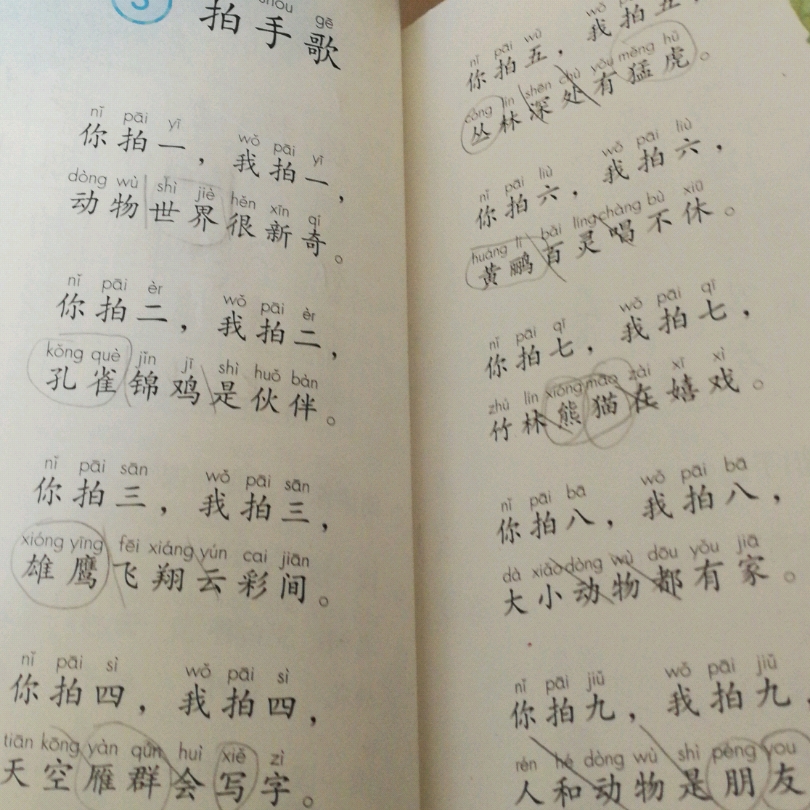 3
shǒu gē
拍手歌
nǐ pāi yī wǒ pāi yī
你拍一，我拍一，
dòng wù shì jiè hěn xīn qí
动物世界很新奇。
nǐ pāi èr wǒ pāi èr
你拍二，我拍二，
kǒng què jǐn jī shì huǒ bàn
孔雀锦鸡是伙伴。
nǐ pāi sān wǒ pāi sān
你拍三，我拍三，
xióng yīng fēi xiáng yún cai jiān
雄鹰飞翔云彩间。
nǐ pāi sì wǒ pāi sì
你拍四，我拍四，
tiān kōng yàn qún huì xiě zì
天空雁群会写字。
nǐ pāi wǔ
你拍五，我拍五，
cóng lín shēn chù yǒu měng hǔ
丛林深处有猛虎。
nǐ pāi liù wǒ pāi liù
你拍六，我拍六，
huáng lí bǎi líng chàng bù xiū
黄鹂百灵唱不休。
nǐ pāi qī wǒ pāi qī
你拍七，我拍七，
zhú lín xióng māo zài xī xì
竹林熊猫在嬉戏。
nǐ pāi bā wǒ pāi bā
你拍八，我拍八，
dà xiǎo dòng wù dōu yǒu jiā
大小动物都有家。
nǐ pāi jiǔ wǒ pāi jiǔ
你拍九，我拍九，
rén hé dòng wù shì péng you
人和动物是朋友